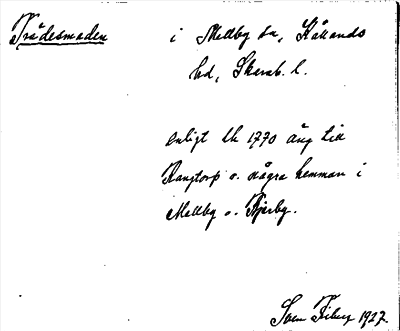 Trädesmaden i Mellby sn, Kållands
hd, Skarab. l.
enligt LK 1770 äng till
Rangtorp o. några hemman i
Mellby o. Tjerby.
Sven Fiberg 1927.